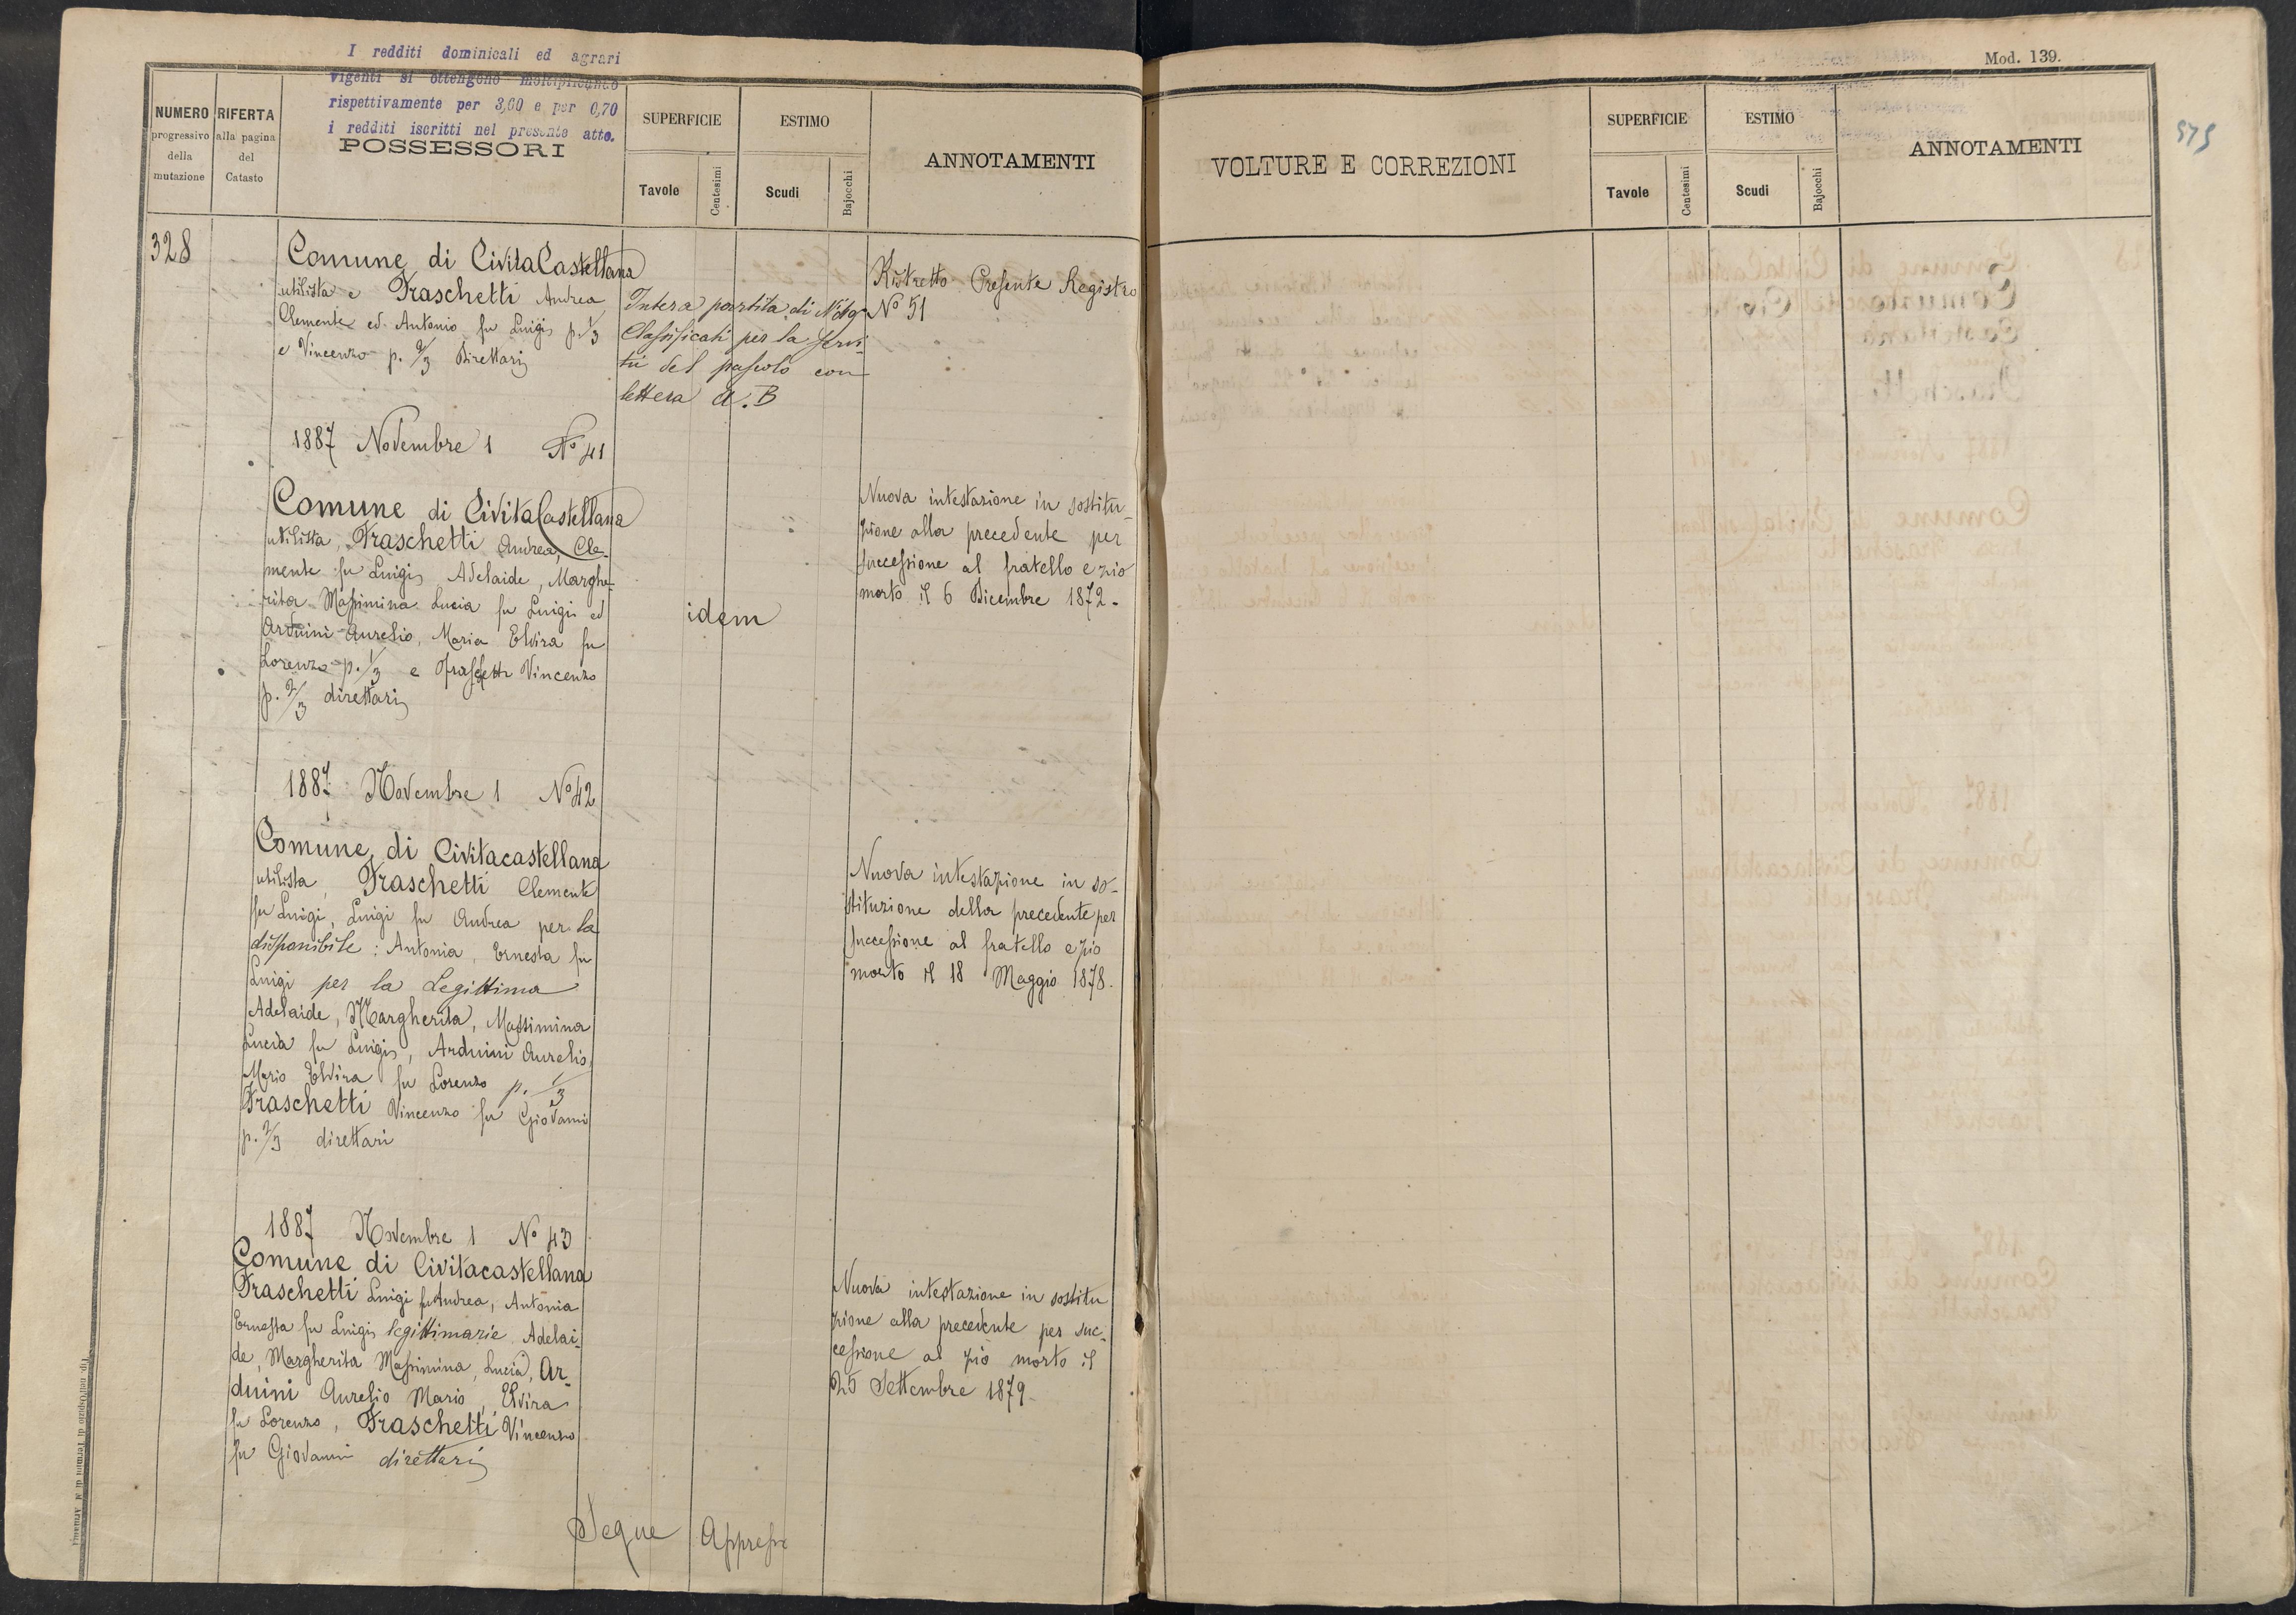 I redditi dominicali ed agrari
vigenti si ottengono moltiplicando
rispettivamente per 3,60 e per 0,70
i redditi iscritti nel presente atto.
Mod. 139.
575
NUMERO
progressivo
della
mutazione
RIFERTA
alla pagina
del
Catasto
POSSESSORI
SUPERFICIE
Tavole
Centesimi
ESTIMO
Scudi
Bajocchi
ANNOTAMENTI
VOLTURE E CORREZIONI
SUPERFICIE
Tavole
Centesimi
ESTIMO
Scudi
Bajocchi
ANNOTAMENTI
328
Comune di CivitaCastellana
utilista e Fraschetti Andrea
Clemente ed Antonio fu Luigi p. 1/3
e Vincenzo p. 2/3 Direttarj
Intera partita di
Classificati per la servi-
tù del pascolo con
lettera A. B
Ristretto Presente Registro
No 51
1887 Novembre 1 No 41
Comune di CivitaCastellana
utilista, Fraschetti Andrea, Cle-
mente fu Luigi, Adelaide, Marghe-
rita Massimina Lucia fu Luigi ed
Arduini Aurelio, Maria Elvira fu
Lorenzo p. 1/3 e Fraschetti Vincenzo
p. 2/3 direttarj
idem
Nuova intestazione in sostitu-
zione alla precedente per
successione al fratello e zio
morto il 6 Dicembre 1872.
1887 Novembre 1 No 42
Comune di Civitacastellana
utilista, Fraschetti Clemente
fu Luigi, Luigi fu Andrea per la
disponibile: Antonia, Ernesta fu
Luigi per la Legittima
Adelaide, Margherita, Massimina
Lucia fu Luigi, Arduini Aurelio,
Mario Elvira fu Lorenzo p. 1/3 e
Fraschetti Vincenzo fu Giovanni
p. 2/3 direttari
Nuova intestazione in so-
stituzione della precedente per
successione al fratello e zio
morto il 18 Maggio 1878.
1887 Novembre 1 No 43
Comune di Civitacastellana
Fraschetti Luigi fu Andrea, Antonia
Ernesta fu Luigi legittimarie Adelai-
de, Margherita Massimina, Lucia, Ar-
duini Aurelio Mario, Elvira
fu Lorenzo, Fraschetti Vincenzo
fu Giovanni direttarj
Nuova intestazione in sostitu
zione alla precedente per suc-
cessione al zio morto il
25 Settembre 1879.
Segue Appresso